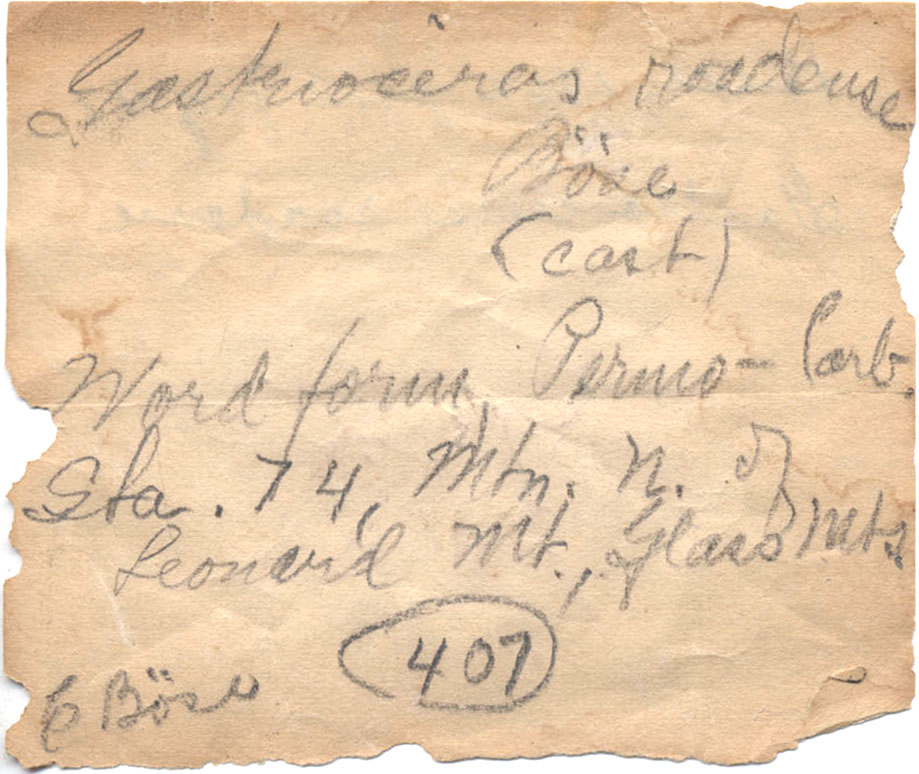 Gastrioceras roadense
Böse
(cast)
Word form, Permo-Carb.
Sta. 74, Mtn. N. of
Leonard Mt., Glass Mts.
407
E Böse